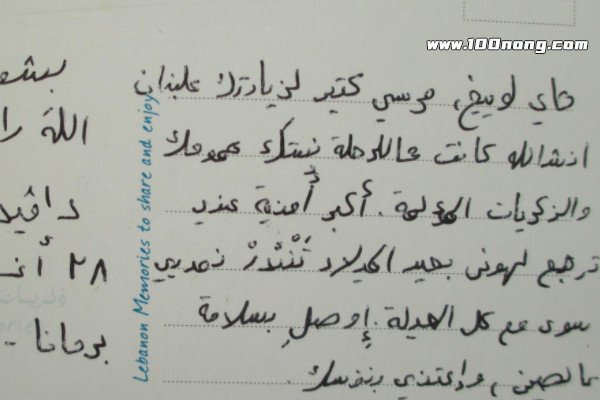 www.100nong.com
هاي لوبيغ، مرسي كتير لزيارتك علبنان
انشالله كانت عالرحلة نستك همومك
والذكريات المؤلمة. أكبر أمنية عندي
ترجع لهون بعيد الميلاد تَنْئدْرْ نعدي
سوى مع كل العيلة. إوصلِ بسلامة
عالصين، وإعتني بنفسك.
الله
٢٨
برمانا
Lebanon Memories to share and enjoy